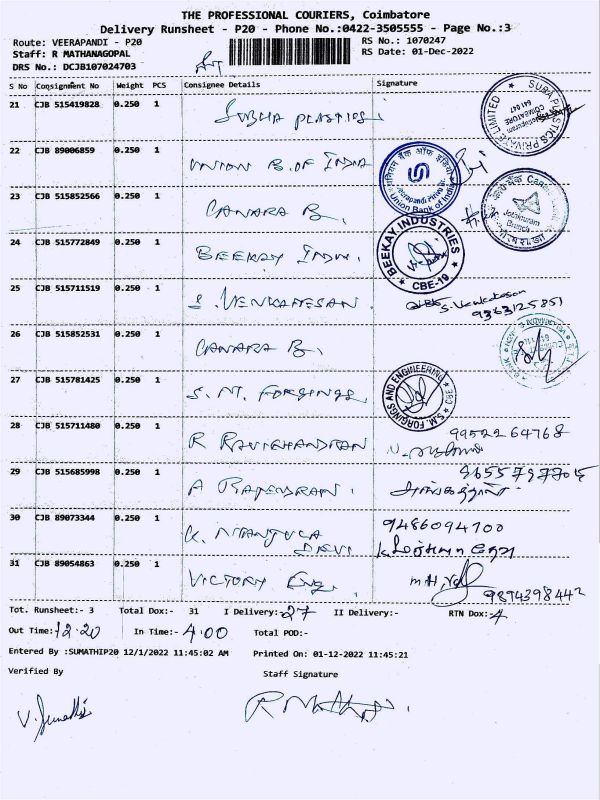 THE PROFESSIONAL COURIERS, Coimbatore
Delivery Runsheet - P20 - Phone No.:0422-3505555 - Page No.:3
Route: VEERAPANDI - P20
RS No.: 1070247
Staff: R MATHANAGOPAL
RS Date: 01-Dec-2022
DRS No.: DCJB107024703
S No Consignment No Weight PCS Consignee Details Signature
21 CJB 515419828 0.250 1 SUBHA PLASTICS
SUBA PLASTICS PRIVATE LIMITED COIMBATORE 641 047
22 CJB 89006859 0.250 1 UNION B. OF INDIA
यूनियन बैंक ऑफ इंडिया Union Bank of India
23 CJB 515852566 0.250 1 CANARA B.
Branch
24 CJB 515772849 0.250 1 BEEKAY INDN.
BEEKAY INDUSTRIES CBE-19
25 CJB 515711519 0.250 1 S. VENKATESAN S. Venkatesan
9363125851
26 CJB 515852531 0.250 1 CANARA B.
27 CJB 515781425 0.250 1 S. M. FORGINGS
S.M. FORGINGS AND ENGINEERING CBE
28 CJB 515711480 0.250 1 R RAVICHANDRAN 9952264768
29 CJB 515685998 0.250 1 A RAJENDRAN.
30 CJB 89073344 0.250 1 K. MANJULA DEVI 9486094700
31 CJB 89054863 0.250 1 VICTORY Eng. 9894398442
Tot. Runsheet:- 3 Total Dox:- 31 I Delivery:- 27 II Delivery:- RTN Dox:- 4
Out Time:- 12.20 In Time:- 4.00 Total POD:-
Entered By :SUMATHIP20 12/1/2022 11:45:02 AM Printed On: 01-12-2022 11:45:21
Verified By Staff Signature